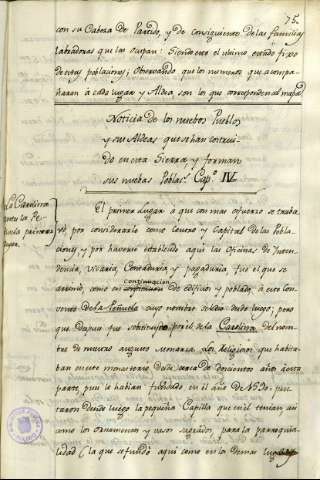 75.
con su Cabeza de Partido, y de consiguiente de las familias
labradoras que las ocupan: Siendo este el ultimo estado fixo
de estas poblaciones; Observando que los numeros que acompa-
ñaren á cada lugar y Aldea, son los que corresponden al mapa
Noticia de los nuebos Pueblos
y sus Aldeas que se han construi-
do en esta Sierra y forman
sus nuebas Poblas. Capo. IV
La Carolina
antes la Pe-
ñuela primera
El primer lugar a que con mas esfuerzo se traba-
jó, por considerarlo como Centro y Capital de las Pobla-
ciones, y por haverse establecido aqui las oficinas de Inten-
dencia, Vicaria, Contaduria y pagaduria, fue el que se
continuacion
arrimó, como en de edificios y poblado, á este Con-
vento de la Peñuela cuyo nombre se le dio desde luego; pero
que despues que substituyó por el de la Carolina del nom-
bre de nuestro augusto Monarca. Los Religiosos que habita-
ban en este monasterio desde cerca de doscientos años á esta
parte, pues le habian fundado en el año de
taron desde luego la pequeña Capilla que en el tenian asi
como los ornamentos y vasos sagrados, para la parroquia-
lidad (la que se fundó aqui como en los demas lugares